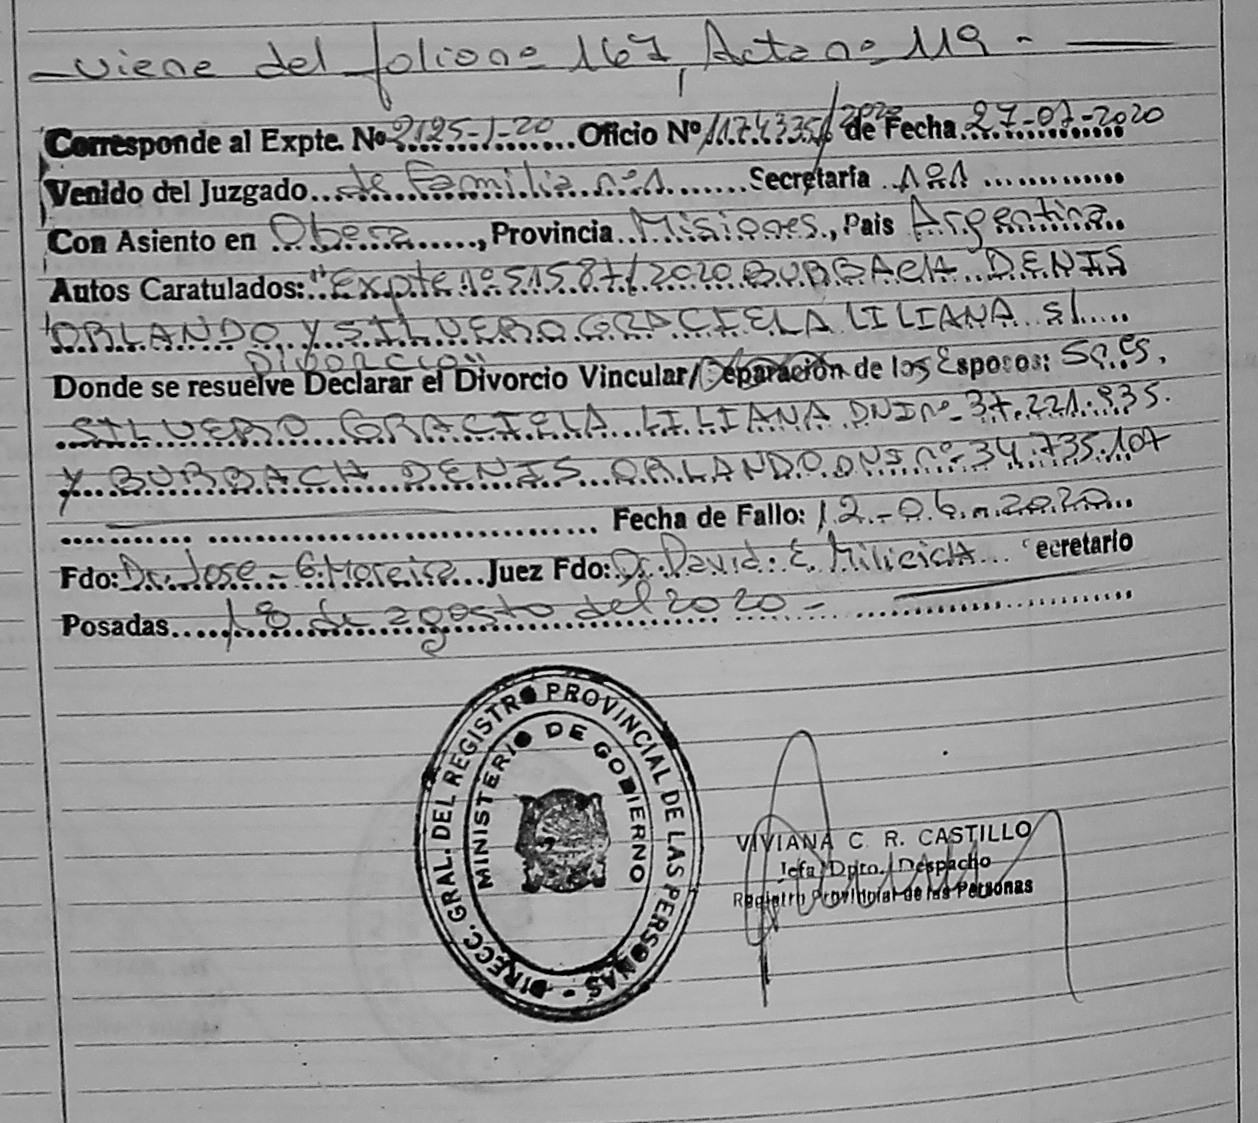 -viene del folio nº 167, Acta nº 119 -
Corresponde al Expte. Nº 2125-J-20 Oficio Nº 1174335/2020 de Fecha 27-07-2020
Venido del Juzgado de Familia nº1 Secretaría 1º1
Con Asiento en Obera, Provincia Misiones, País Argentina
Autos Caratulados: "Expte nº 51587/2020 BURBACH DENIS
ORLANDO Y SILVERO GRACIELA LILIANA s/
DIVORCIO"
Donde se resuelve Declarar el Divorcio Vincular/Separación de los Esposos: Sres.
SILVERO GRACIELA LILIANA DNI nº 37.221.935.
Y BURBACH DENIS ORLANDO DNI nº 34.735.107
Fecha de Fallo: 12-06-2020
Fdo: Dr. Jose G. Moreira Juez Fdo: Dr. David E. Milicich Secretario
Posadas 18 de agosto del 2020-
DIRECC. GRAL. DEL REGISTRO PROVINCIAL DE LAS PERSONAS -
MINISTERIO DE GOBIERNO
VIVIANA C. R. CASTILLO
Jefa Dpto. Despacho
Registro Provincial de las Personas